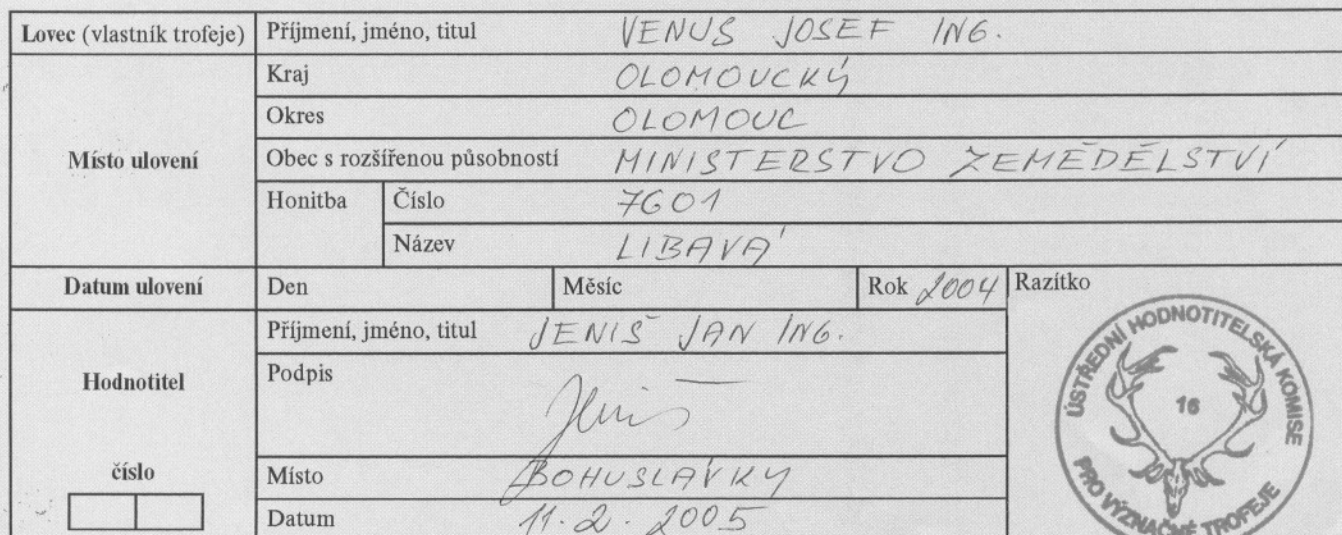 Lovec (vlastník trofeje) Příjmení, jméno, titul VENUS JOSEF ING.
Místo ulovení
Kraj OLOMOUCKÝ
Okres OLOMOUC
Obec s rozšířenou působností MINISTERSTVO ZEMĚDĚLSTVÍ
Honitba Číslo 7601
Název LIBAVÁ
Datum ulovení Den Měsíc Rok 2004 Razítko
Hodnotitel
Příjmení, jméno, titul JENIŠ JAN ING.
Podpis Jeniš
číslo
Místo BOHUSLÁVKY
Datum 11.2.2005
ÚSTŘEDNÍ HODNOTITELSKÁ KOMISE
16
PRO VÝZNAČNÉ TROFEJE